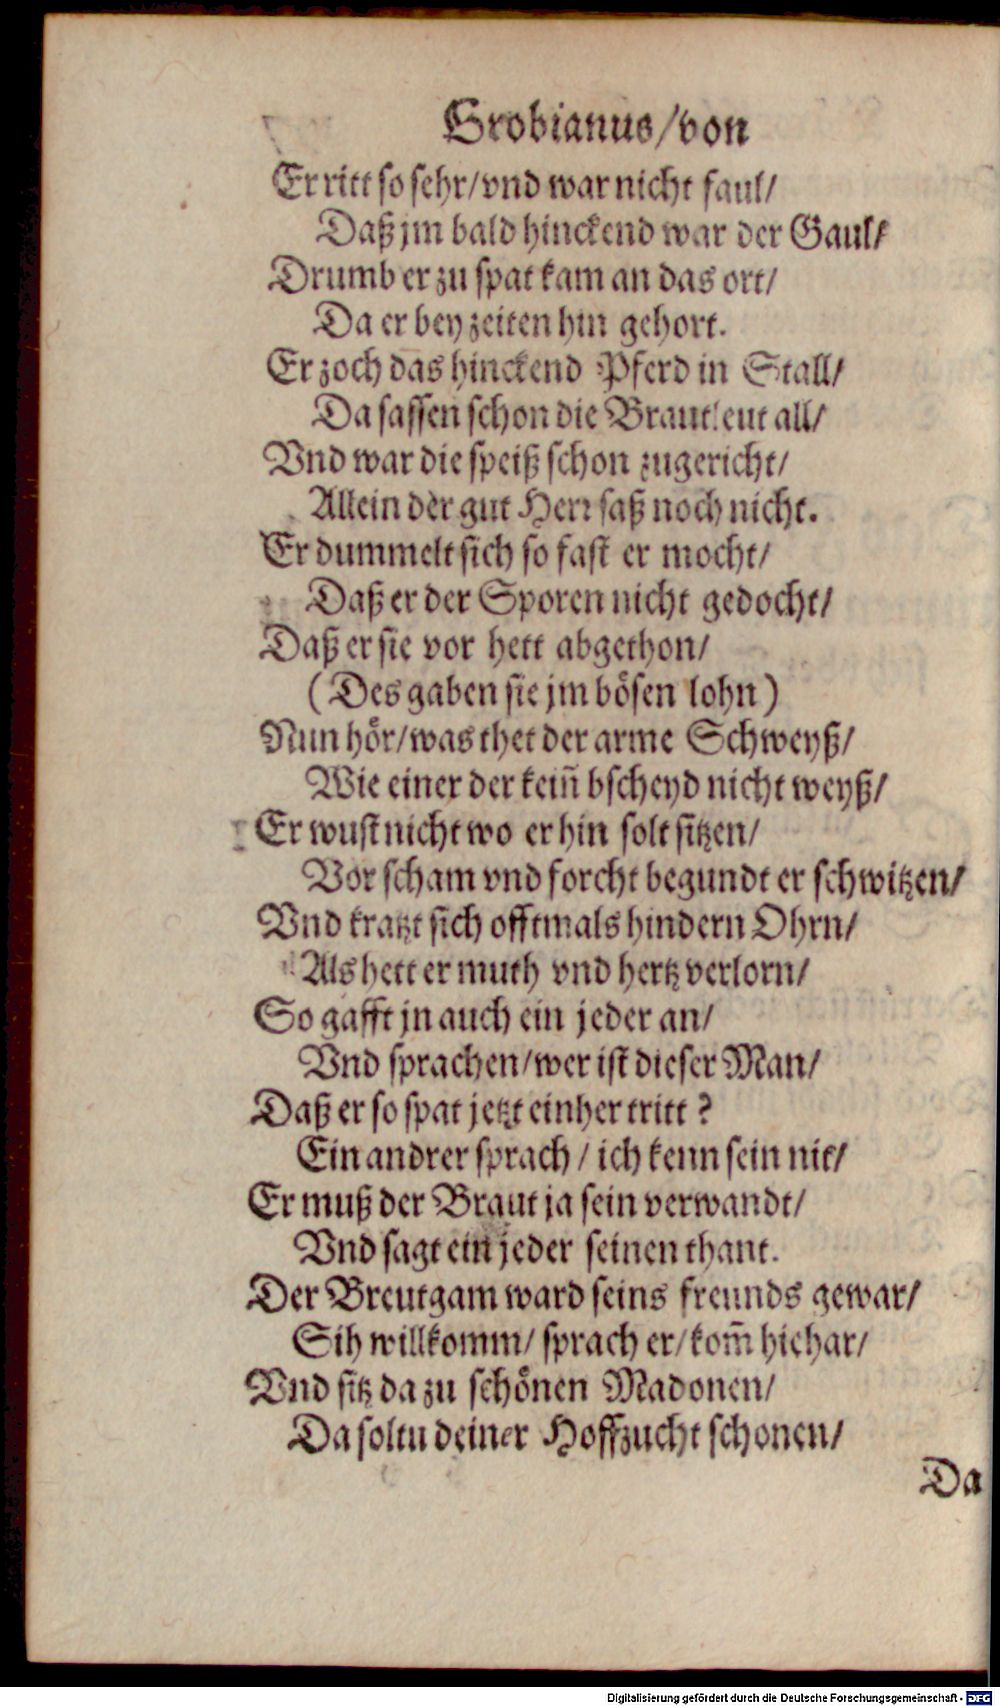 Grobianus/von
Er ritt so sehr/vnd war nicht faul/
Daß jm bald hinckend war der Gaul/
Drumb er zu spat kam an das ort/
Da er bey zeiten hin gehort.
Er zoch das hinckend Pferd in Stall/
Da sassen schon die Brautleut all/
Vnd war die speiß schon zugericht/
Allein der gut Herr saß noch nicht.
Er dummelt sich so fast er mocht/
Daß er der Sporen nicht gedocht/
Daß er sie vor hett abgethon/
(Des gaben sie jm bösen lohn)
Nun hör/was thet der arme Schweyß/
Wie einer der kein̄ bscheyd nicht weyß/
Er wust nicht wo er hin solt sitzen/
Vor scham vnd forcht begundt er schwitzen/
Vnd kratzt sich offtmals hindern Ohrn/
Als hett er muth vnd hertz verlorn/
So gafft jn auch ein jeder an/
Vnd sprachen/wer ist dieser Man/
Daß er so spat jetzt einher tritt?
Ein andrer sprach/ich kenn sein nit/
Er muß der Braut ja sein verwandt/
Vnd sagt ein jeder seinen thant.
Der Breutgam ward seins freunds gewar/
Sih willkomm/sprach er/kom̄ hiehar/
Vnd sitz da zu schönen Madonen/
Da soltu deiner Hoffzucht schonen/
Da
Digitalisierung gefördert durch die Deutsche Forschungsgemeinschaft - DFG